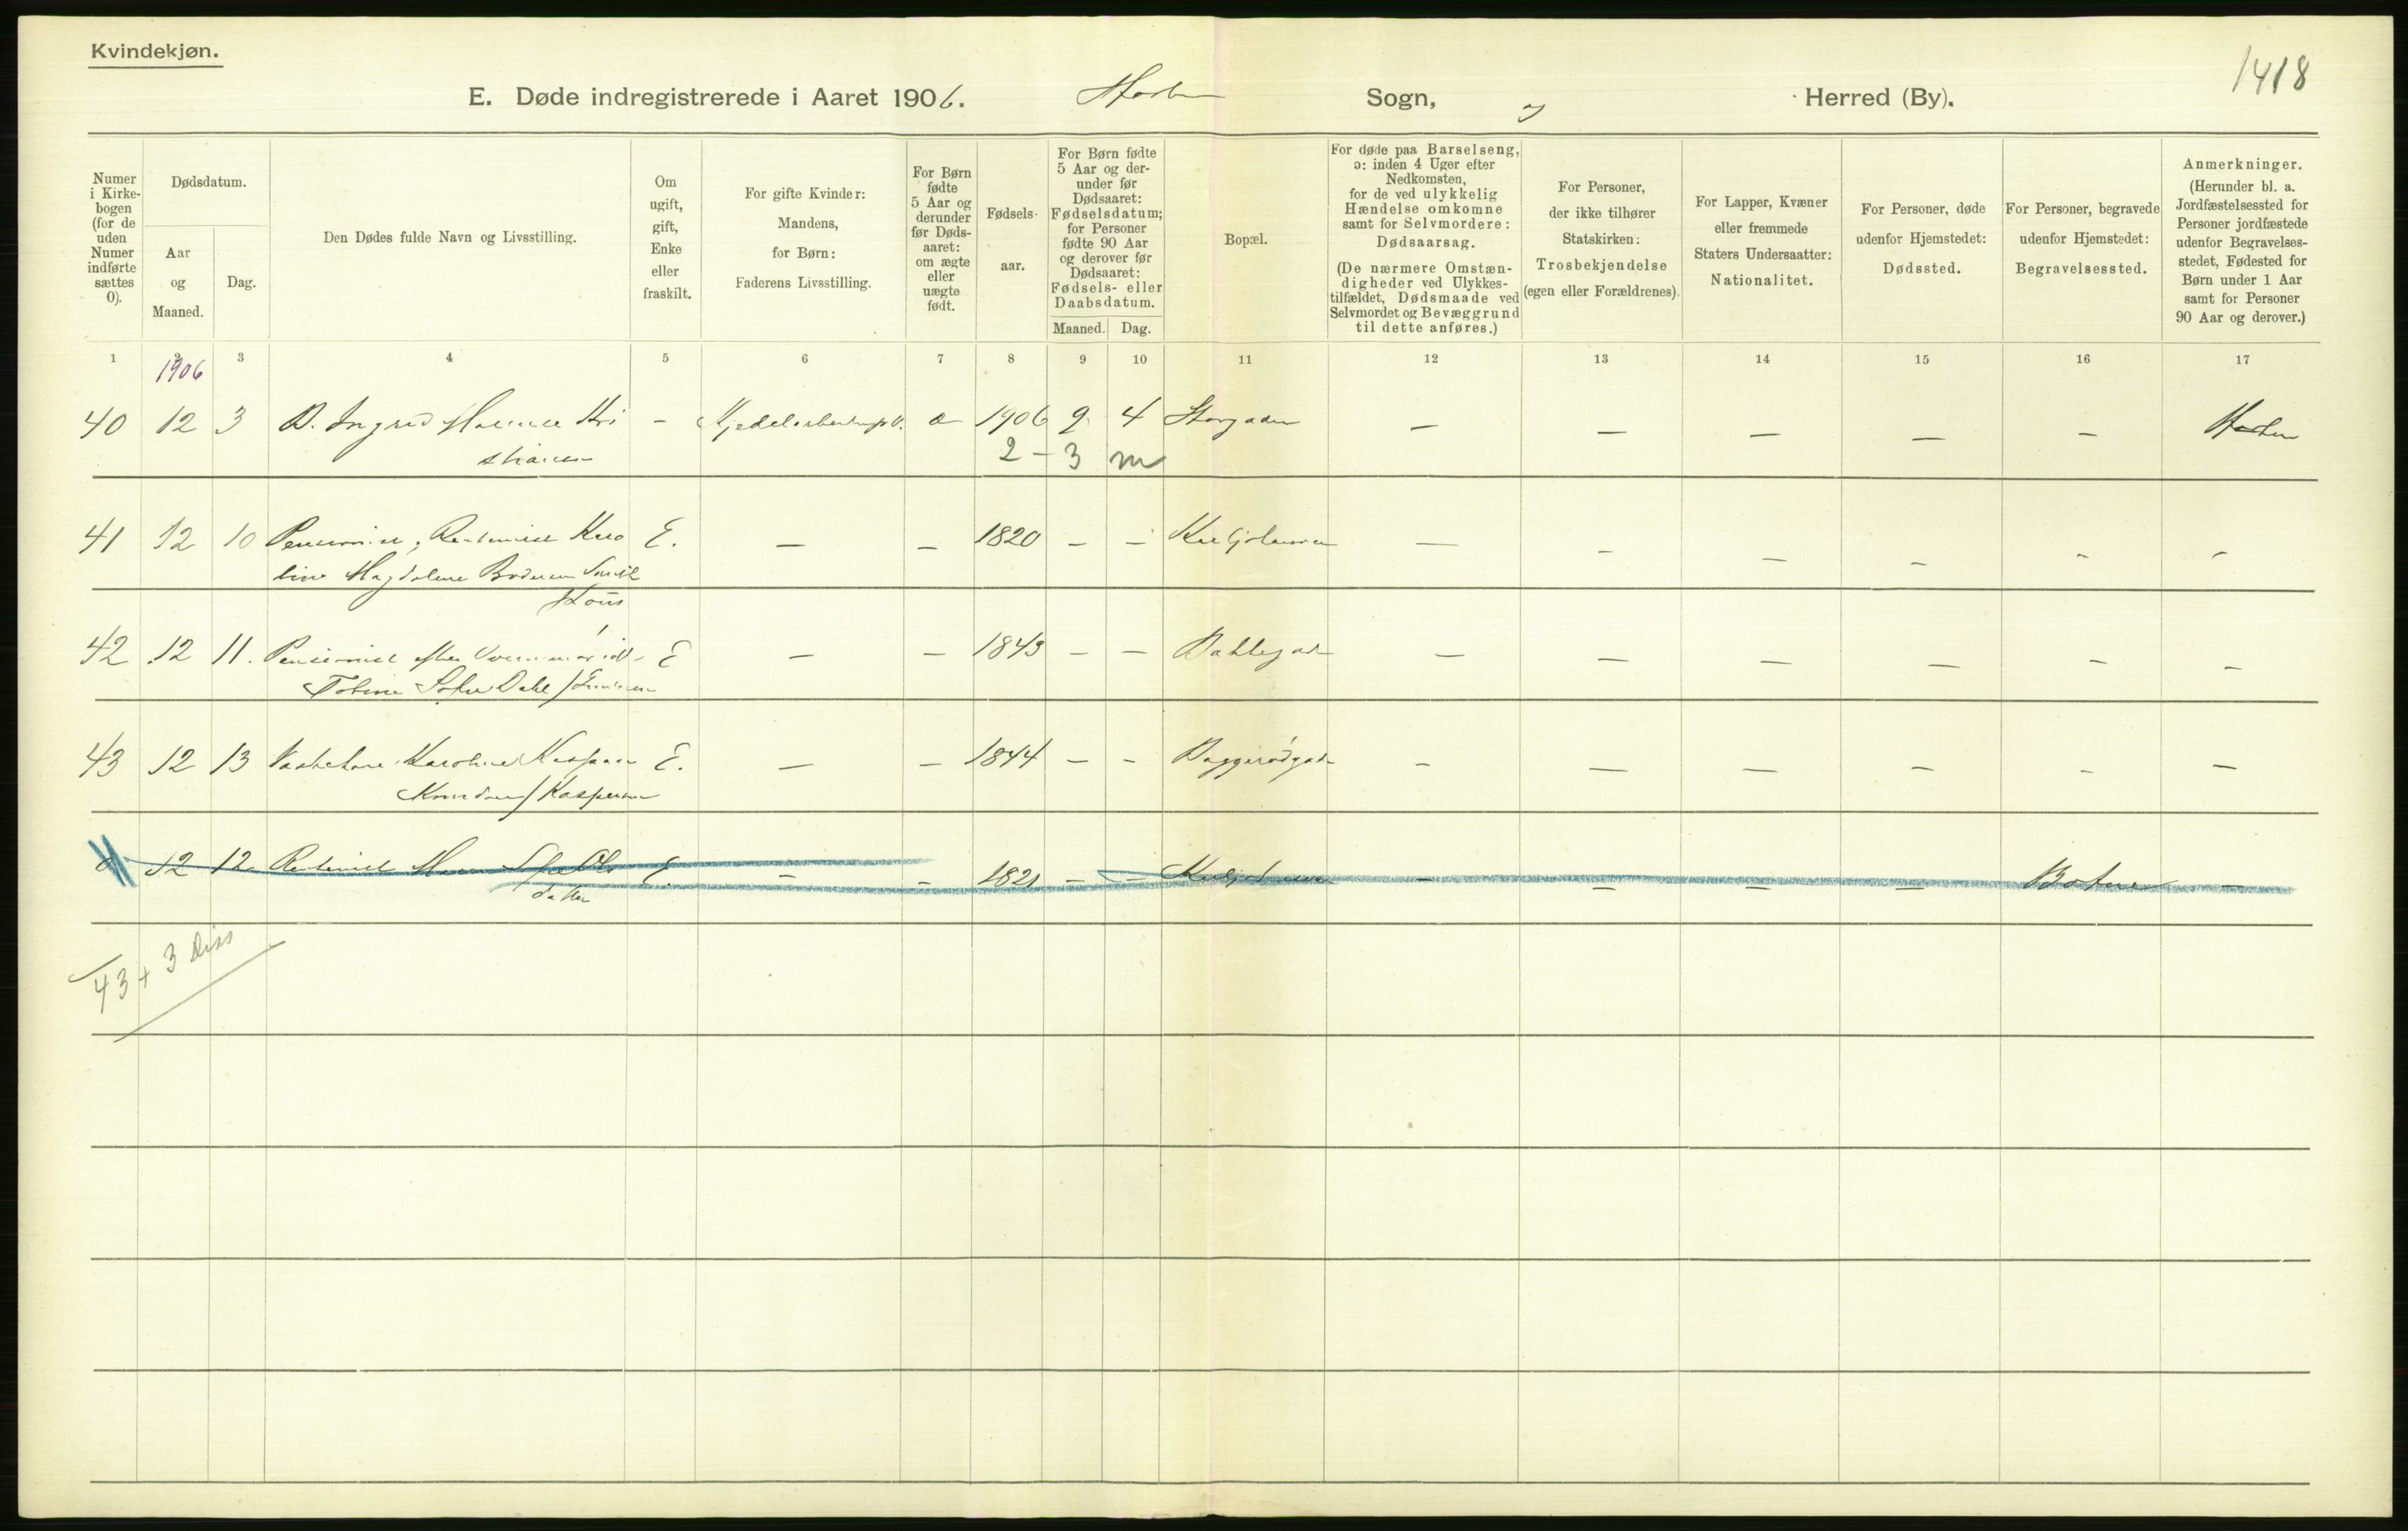 Kvindekjøn.
1418
E. Døde indregistrerede i Aaret 1906. Horten Sogn, Herred (By).
Numer i Kirkebogen (for de uden Numer indførte sættes 0).
Dødsdatum.
Aar og Maaned.
Dag.
Den Dødes fulde Navn og Livsstilling.
Om ugift, gift, Enke eller fraskilt.
For gifte Kvinder: Mandens, for Børn: Faderens Livsstilling.
For Børn fødte 5 Aar og derunder før Dødsaaret: om ægte eller uægte født.
Fødselsaar.
For Børn fødte 5 Aar og derunder før Dødsaaret: Fødselsdatum; for Personer fødte 90 Aar og derover før Dødsaaret: Fødsels- eller Daabsdatum.
Maaned. Dag.
Bopæl.
For døde paa Barselseng, ɔ: inden 4 Uger efter Nedkomsten, for de ved ulykkelig Hændelse omkomne samt for Selvmordere: Dødsaarsag.
(De nærmere Omstændigheder ved Ulykkestilfældet, Dødsmaade ved Selvmordet og Bevæggrund til dette anføres.)
For Personer, der ikke tilhører Statskirken: Trosbekjendelse (egen eller Forældrenes).
For Lapper, Kvæner eller fremmede Staters Undersaatter: Nationalitet.
For Personer, døde udenfor Hjemstedet: Dødssted.
For Personer, begravede udenfor Hjemstedet: Begravelsessted.
Anmerkninger.
(Herunder bl. a. Jordfæstelsessted for Personer jordfæstede udenfor Begravelsesstedet, Fødested for Børn under 1 Aar samt for Personer 90 Aar og derover.)
1 2 3 4 5 6 7 8 9 10 11 12 13 14 15 16 17
1906
40 12 3 D. Ingrid Kri - 1906 9 4 Storgaden - - - - - Horten
stiansen 2 - 3 m
41 12 10 Pensionist, Rentenist Karo E. - - 1820 - - - - - - - -
line Magdalene
42 12 11. Pensionist efter E - - 1843 - - - - - - - -
Sofie Dahl /
43 12 13 Karoline E. - - 1844 - - - - - - - -
Knudsen / Kaspersen
0 12 12 E. - - 1821 - - - - - - Botne -
datter
43 + 3 Diss